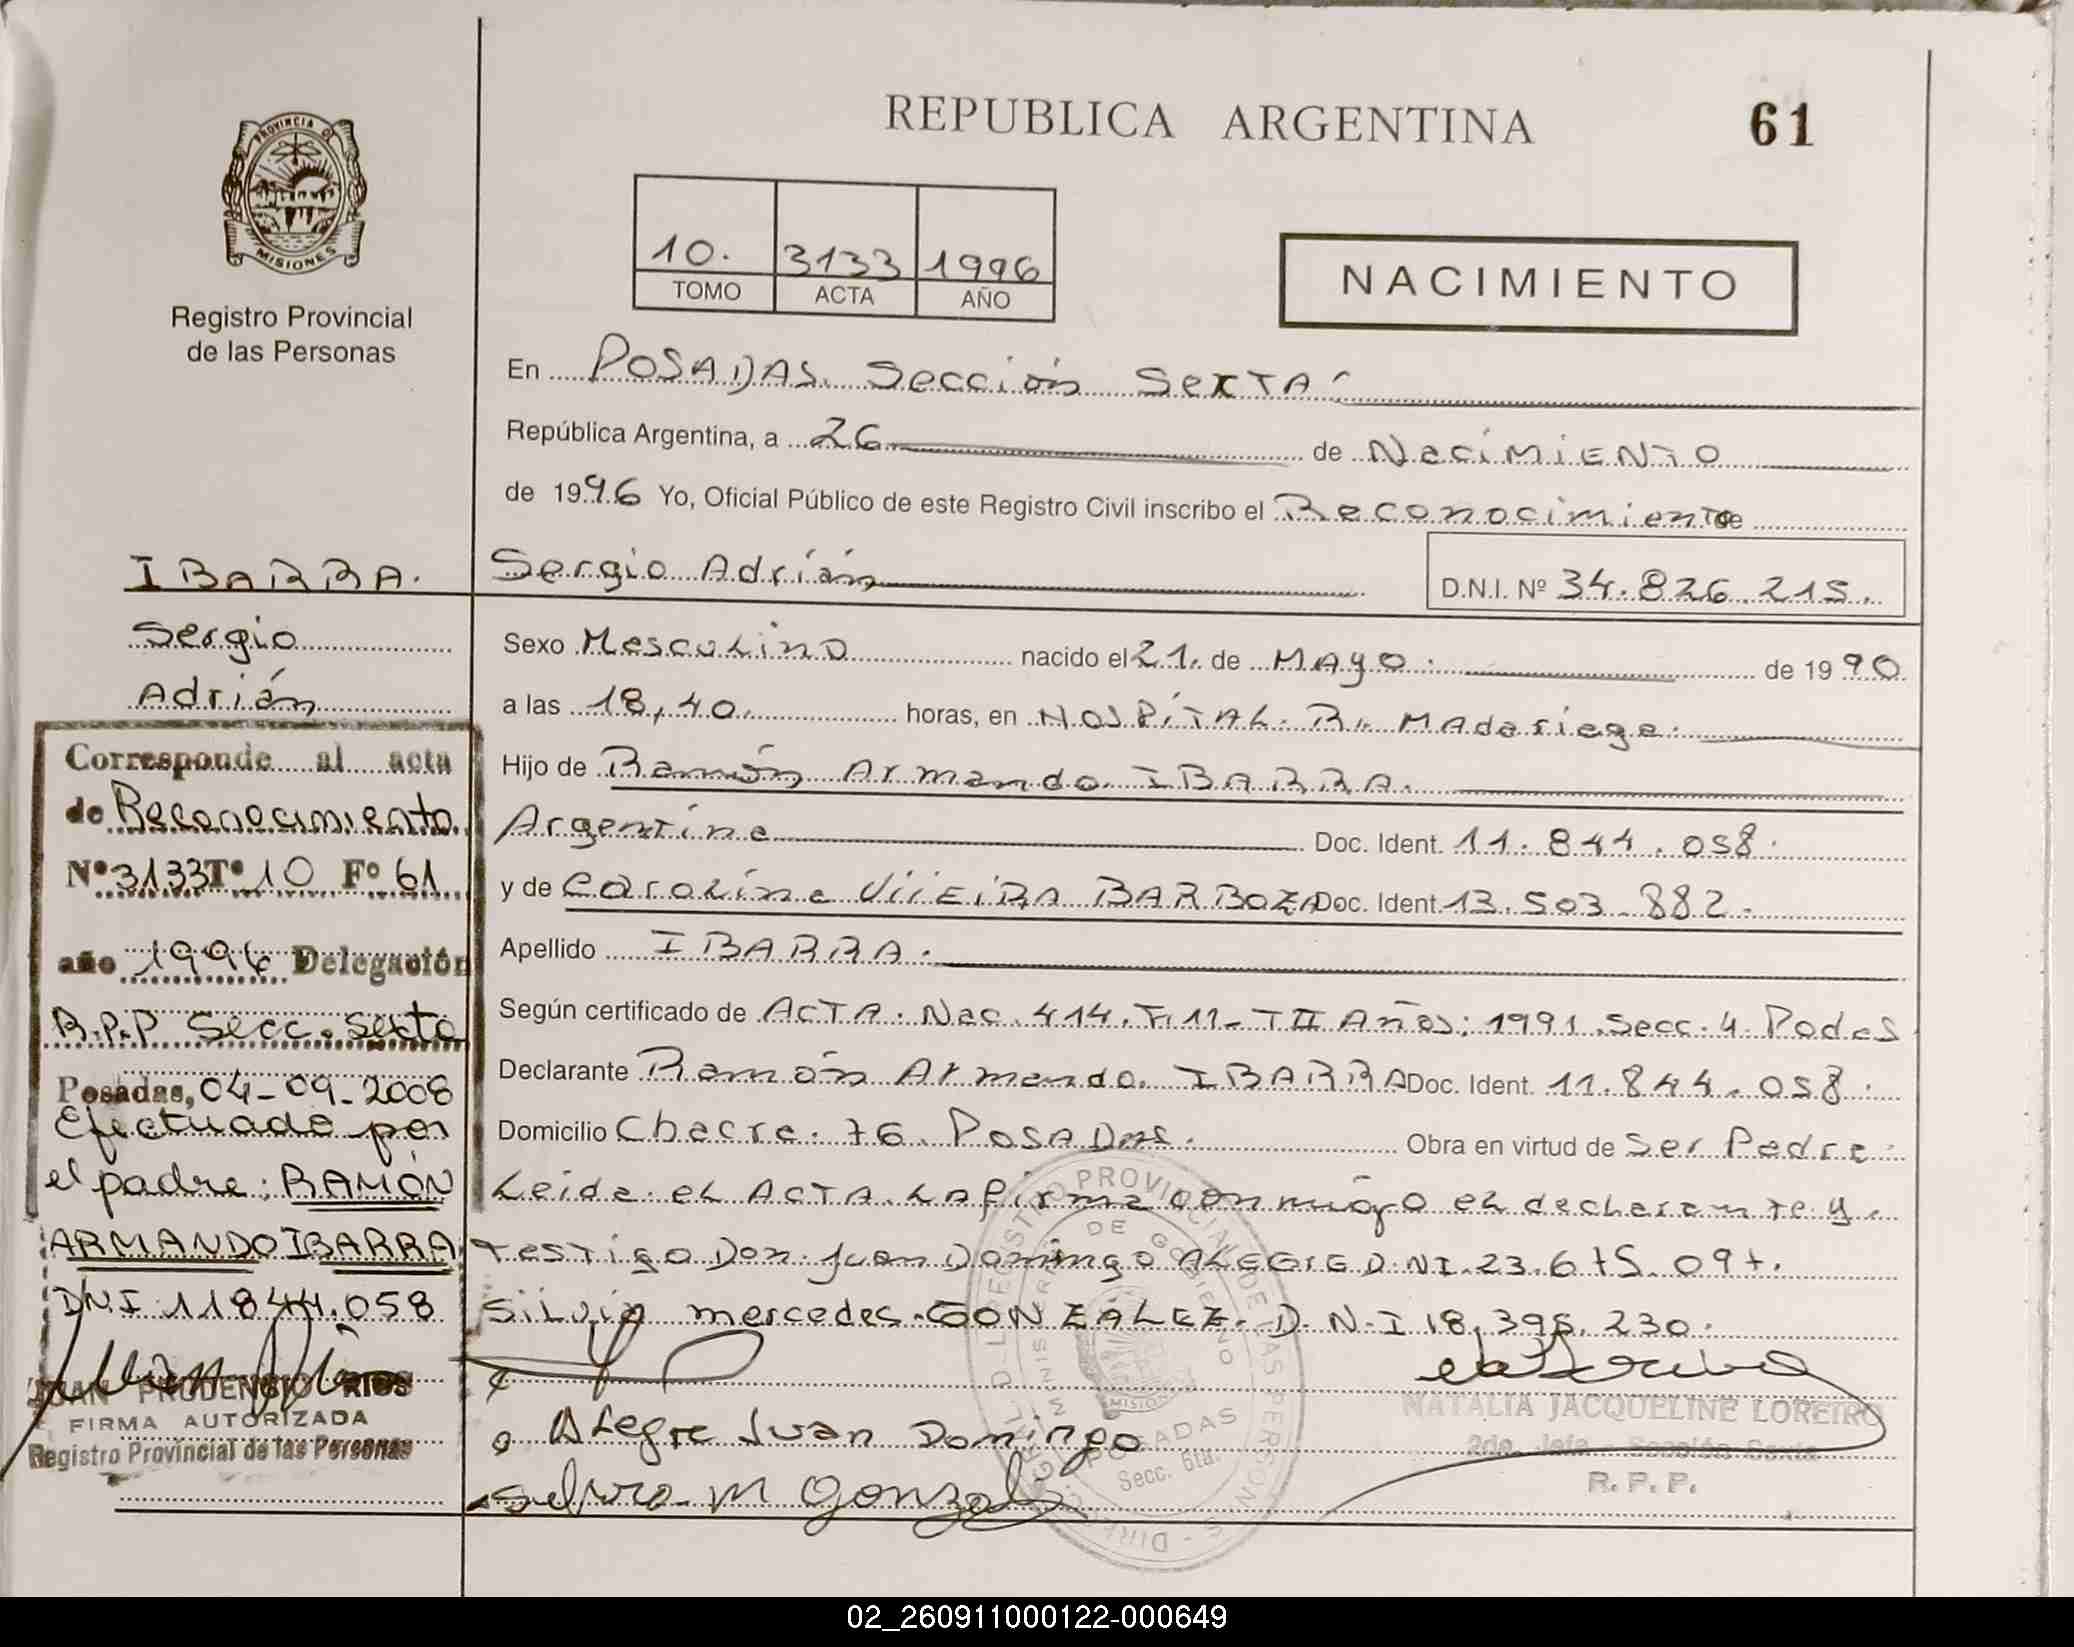 REPUBLICA ARGENTINA
61
PROVINCIA D
MISIONES
Registro Provincial
de las Personas
10. 3133 1996
TOMO ACTA AÑO
NACIMIENTO
En POSADAS. Sección SexTA.
República Argentina, a 26 de NacimiENTO
de 1996 Yo, Oficial Público de este Registro Civil inscribo el Reconocimiento de
Sergio Adrián D.N.I. Nº 34.826.215.
Sexo Mesculino nacido el 21. de MAyo. de 1990
a las 18,40. horas, en HOSPITAL. R. MAdariaga.
Hijo de Ramón Armando IBARRA.
Argentina Doc. Ident. 11.844.058.
y de Carolina ViiEiRA BARBOZA Doc. Ident. 13.503.882.
Apellido IBARRA.
Según certificado de ACTA. Nac. 414. F.11- TII Años: 1991. Secc. 4. Podas
Declarante Ramón Armando. IBARRA Doc. Ident. 11.844.058.
Domicilio Chacra. 76. POSADAS. Obra en virtud de Ser Padre.
Leida. el ACTA. LA firma conmigo el declarante y.
Testigo Don. Juan Domingo ALEGRE D.NI. 23.675.097.
Silvia mercedes. GONZALEZ. D.N.I 18.395.230.
Alegre Juan Domingo
M Gonzalez
NATALIA JACQUELINE LOREIRO
2da. Jefa - Sección Sexta
R. P. P.
IBARRA.
Sergio
Adrián
Corresponde al acta
de Reconocimiento.
Nº 3133 Tº 10 Fº 61
año 1996 Delegación
R.P.P Secc. Sexta
Posadas, 04-09-2008
Efectuado por
el padre: RAMÓN
ARMANDO IBARRA
DN.I 11844.058
JUAN PRUDENSIO RIOS
FIRMA AUTORIZADA
Registro Provincial de las Personas
POSADAS
Secc. 6ta.
02_260911000122-000649